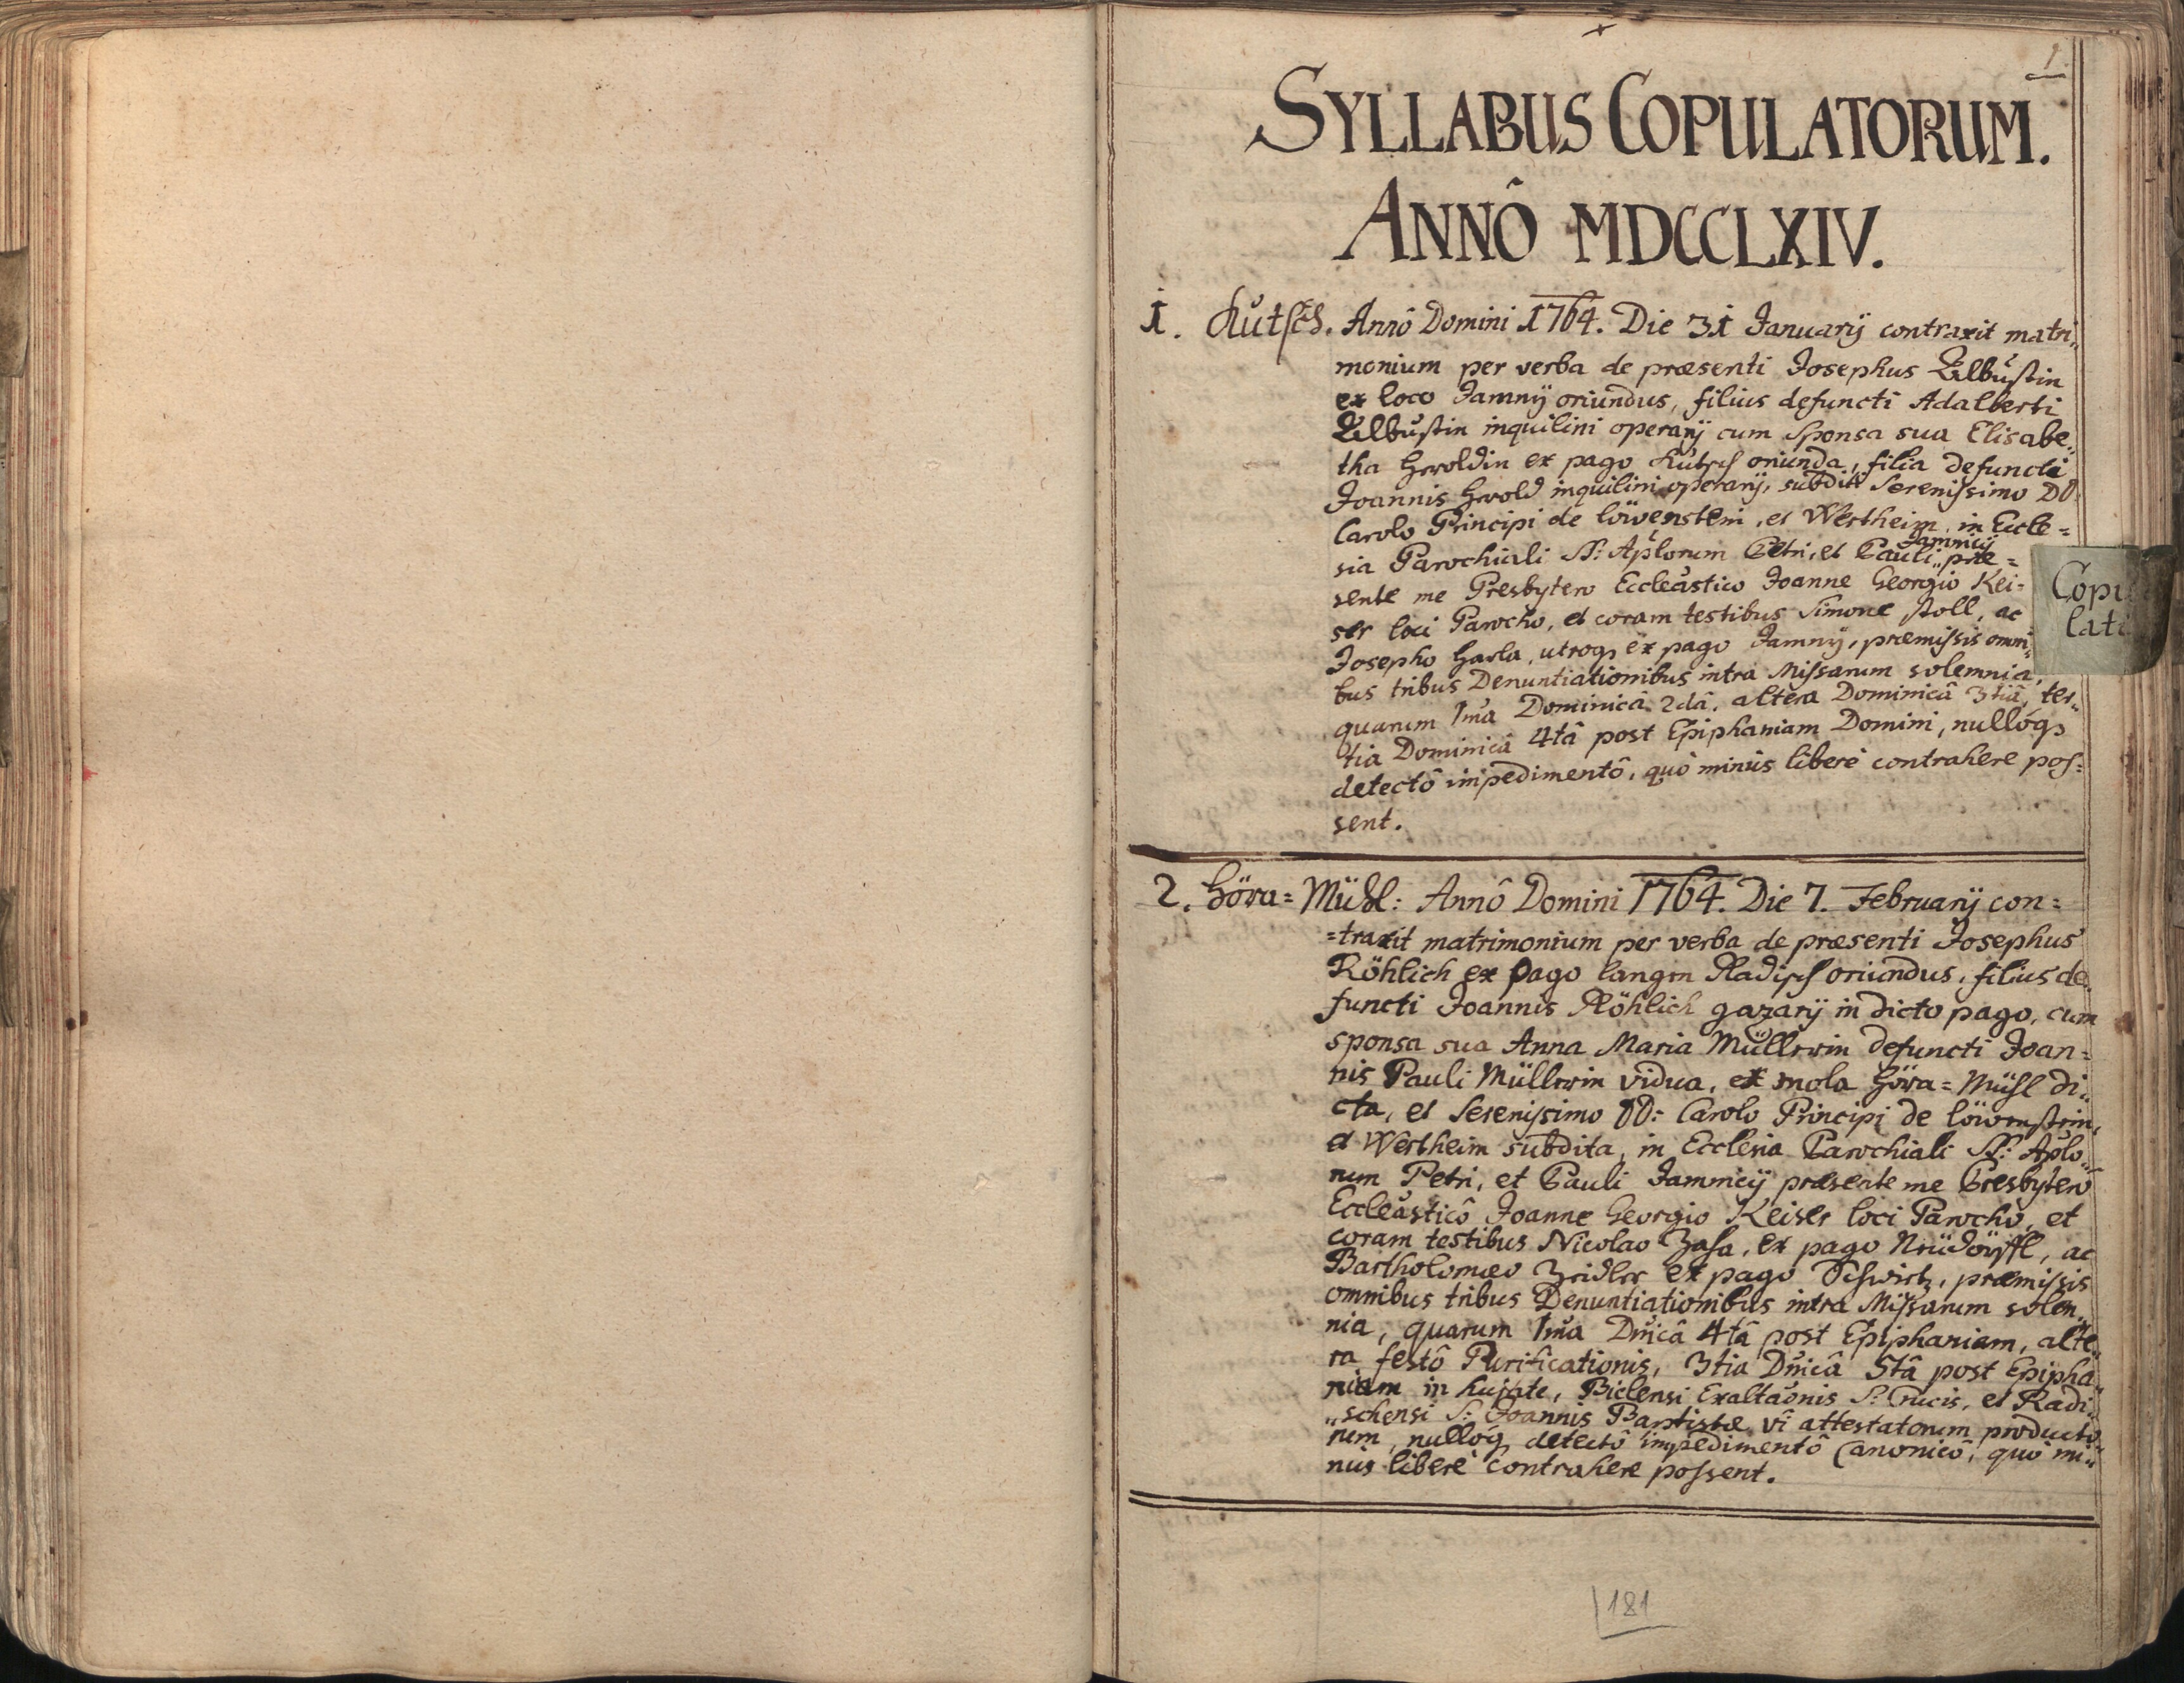 1
SYLLABUS COPULATORUM.
ANNÔ MDCCLXIV.
1. Kutsch. Annô Domini 1764. Die 31 Januarÿ contraxit matri„
monium per verba de præsenti Josephus
ex loco Jamnÿ oriundus, filius defuncti Adalberti
inquilini operarÿ cum Sponsa sua Elisabe„
tha Heroldin ex pago Kutsch oriunda, filia defuncti
Joannis Herold inquilini operarÿ, subditi Serenissimo DD:
Carolo Principi de Löwenstein, et Wertheim, in Eccle=
Jamnicÿ
sia Parochiali SS: Aplorum Petri, et Pauli„ præ=
sente me Presbytero Eccleastico Joanne Georgio Kei=
ser loci Parocho, et coram testibus Simone Stoll, ac
Josepho Hasla, utroq, ex pago Jamnÿ, præmissis omni„
bus tribus Denuntiationibus intra Missarum solemnia,
quarum 1ma Dominicâ 2dâ, altera Dominicâ 3tiâ, ter„
tia Dominicâ 4tâ post Epiphaniam Domini, nullóq,
detectô impedimentô, quò minùs liberè contrahere pos=
sent.
Copu
lati
2. Göra=Mühl: Annô Domini 1764. Die 7. Februarÿ con=
=traxit matrimonium per verba de præsenti Josephus
Röhlich ex pago langen Radisch oriundus, filius de„
functi Joannis Röhlich gazarÿ in dicto pago, cum
sponsa sua Anna Maria Müllerin defuncti Joan=
nis Pauli Müllerin vidua, ex mola Göra=Mühl di„
cta, et Serenissimo DD: Carolo Principi de Löwenstein,
et Wertheim subdita, in Ecclesia Parochiali SS: Aplo„
rum Petri, et Pauli Jamnicÿ præsente me Presbytero
Eccleasticô Joanne Georgio Keiser loci Parocho, et
coram testibus Nicolao Hasa, ex pago Neüdörffl, ac
Bartholomæo Zeidler ex pago Schwirtz, præmissis
omnibus tribus Denuntiationibus intra Missarum solem„
nia, quarum 1ma Dnicâ 4tâ post Epiphaniam, alte„
ra festô Purificationis, 3tia Dnicâ 5tâ post Epipha„
niam in hujate, Bielensi Exaltaonis S: Crucis, et Radi„
„schensi S: Joannis Baptistæ vi attestatorum producto„
rum, nulloq, detectô impedimentô Canonicô, quò mi„
nùs liberè contrahere possent.
181